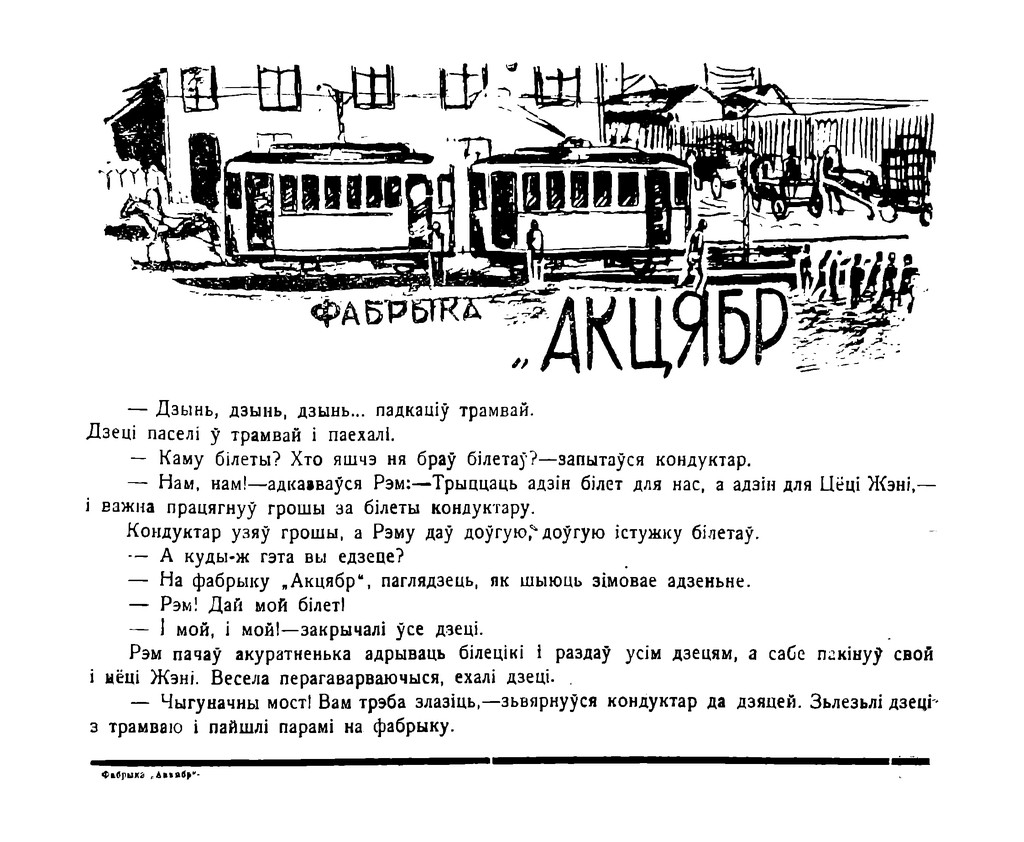 ФАБРЫКА
„АКЦЯБР
— Дзынь, дзынь, дзынь... падкаціў трамвай.
Дзеці паселі ў трамвай і паехалі.
— Каму білеты? Хто яшчэ ня браў білетаў?—запытаўся кондуктар.
— Нам, нам!—адказваўся Рэм:—Трыццаць адзін білет для нас, а адзін для Цёці Жэні,—
і важна працягнуў грошы за білеты кондуктару.
Кондуктар узяў грошы, а Рэму даў доўгую, доўгую істужку білетаў.
— А куды-ж гэта вы едзеце?
— На фабрыку „Акцябр“, паглядзець, як шыюць зімовае адзеньне.
— Рэм! Дай мой білет!
— І мой, і мой!—закрычалі ўсе дзеці.
Рэм пачаў акуратненька адрываць білецікі і раздаў усім дзецям, а сабе пакінуў свой
і цёці Жэні. Весела перагаварваючыся, ехалі дзеці.
— Чыгуначны мост! Вам трэба злазіць,—зьвярнуўся кондуктар да дзяцей. Зьлезьлі дзеці
з трамваю і пайшлі парамі на фабрыку.
Фабрыка „Акцябр“.